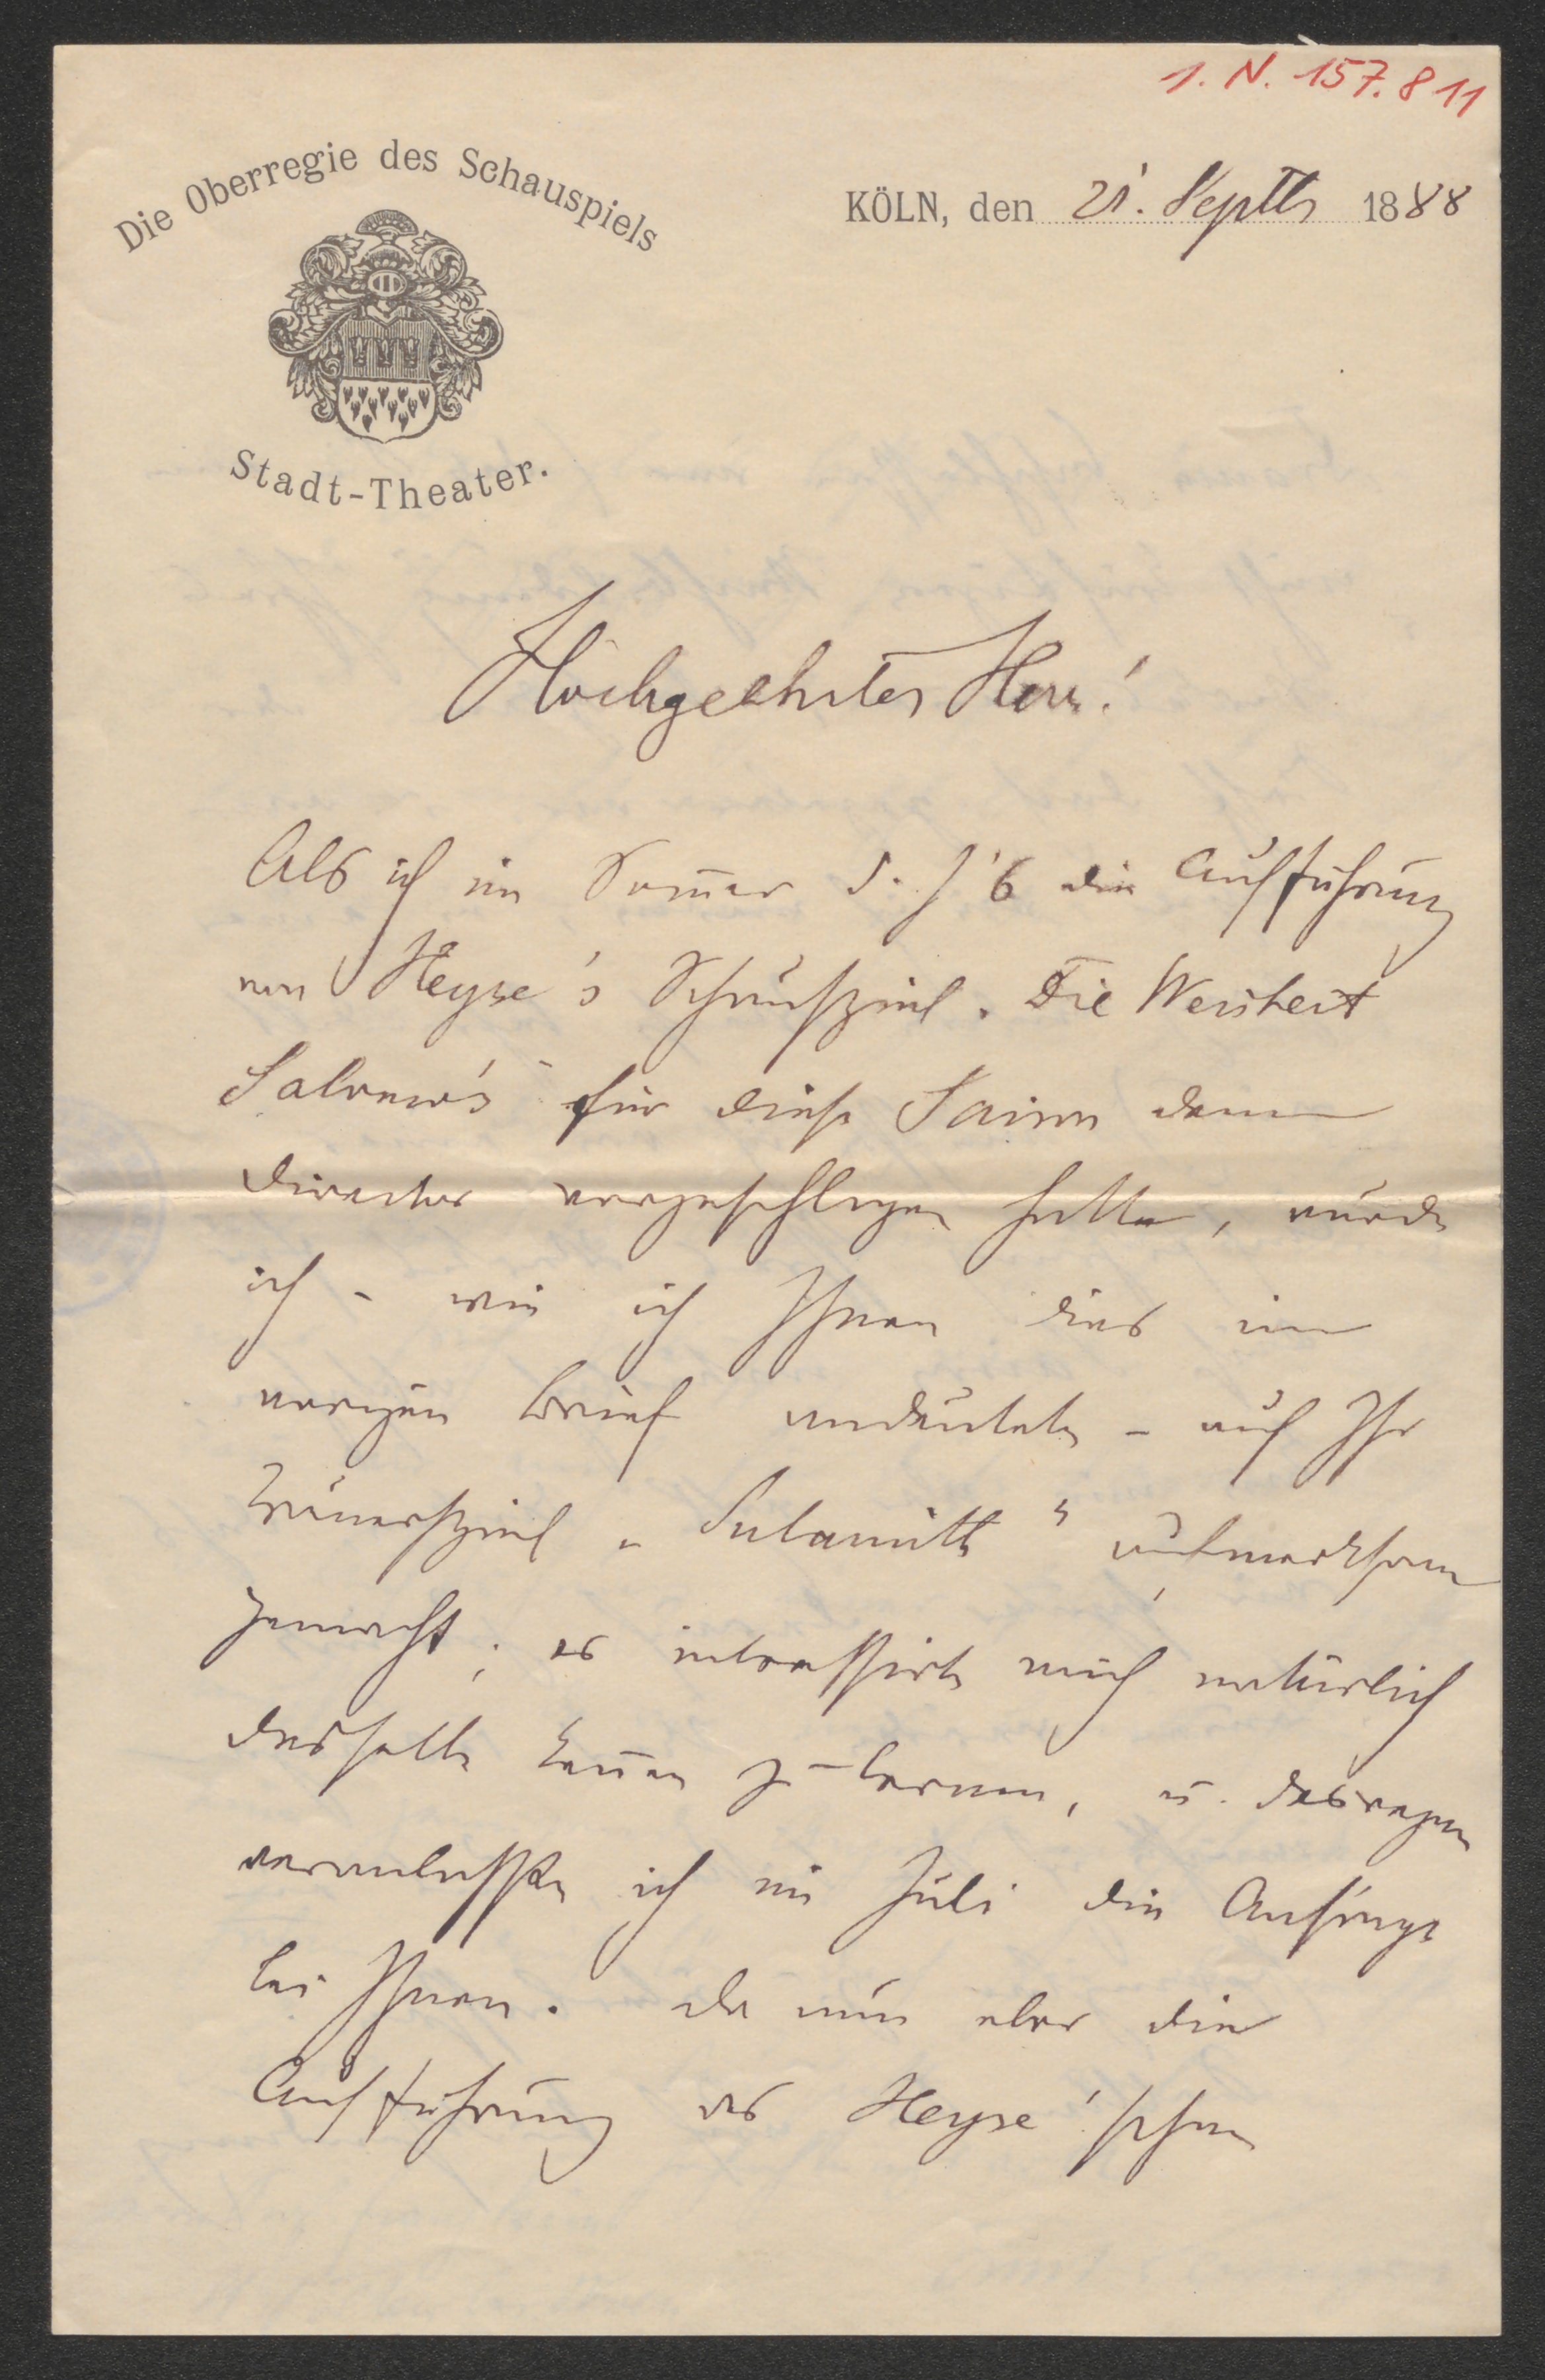 1. N. 157.811
Die Oberregie des Schauspiels
Stadt-Theater.
KÖLN, den 21. Septbr 1888
Hochgeehrter Herr!
Als ich im Som̅er d. J's die Aufführung
von Heyse's Schauspiel „Die Weisheit
Salomo's“ für diese Saison dem
Director vorgeschlagen hatte, wurde
ich – wie ich Ihnen dies im
vorigen Brief andeutete – auf Ihr
Trauerspiel „Sulamith“ aufmerksam
gemacht; es interessirte mich natürlich
dasselbe ken̅en zu lernen, u. deswegen
veranlasste ich im Juli die Anfrage
bei Ihnen. Da nun aber die
Aufführung des Heyse'schen